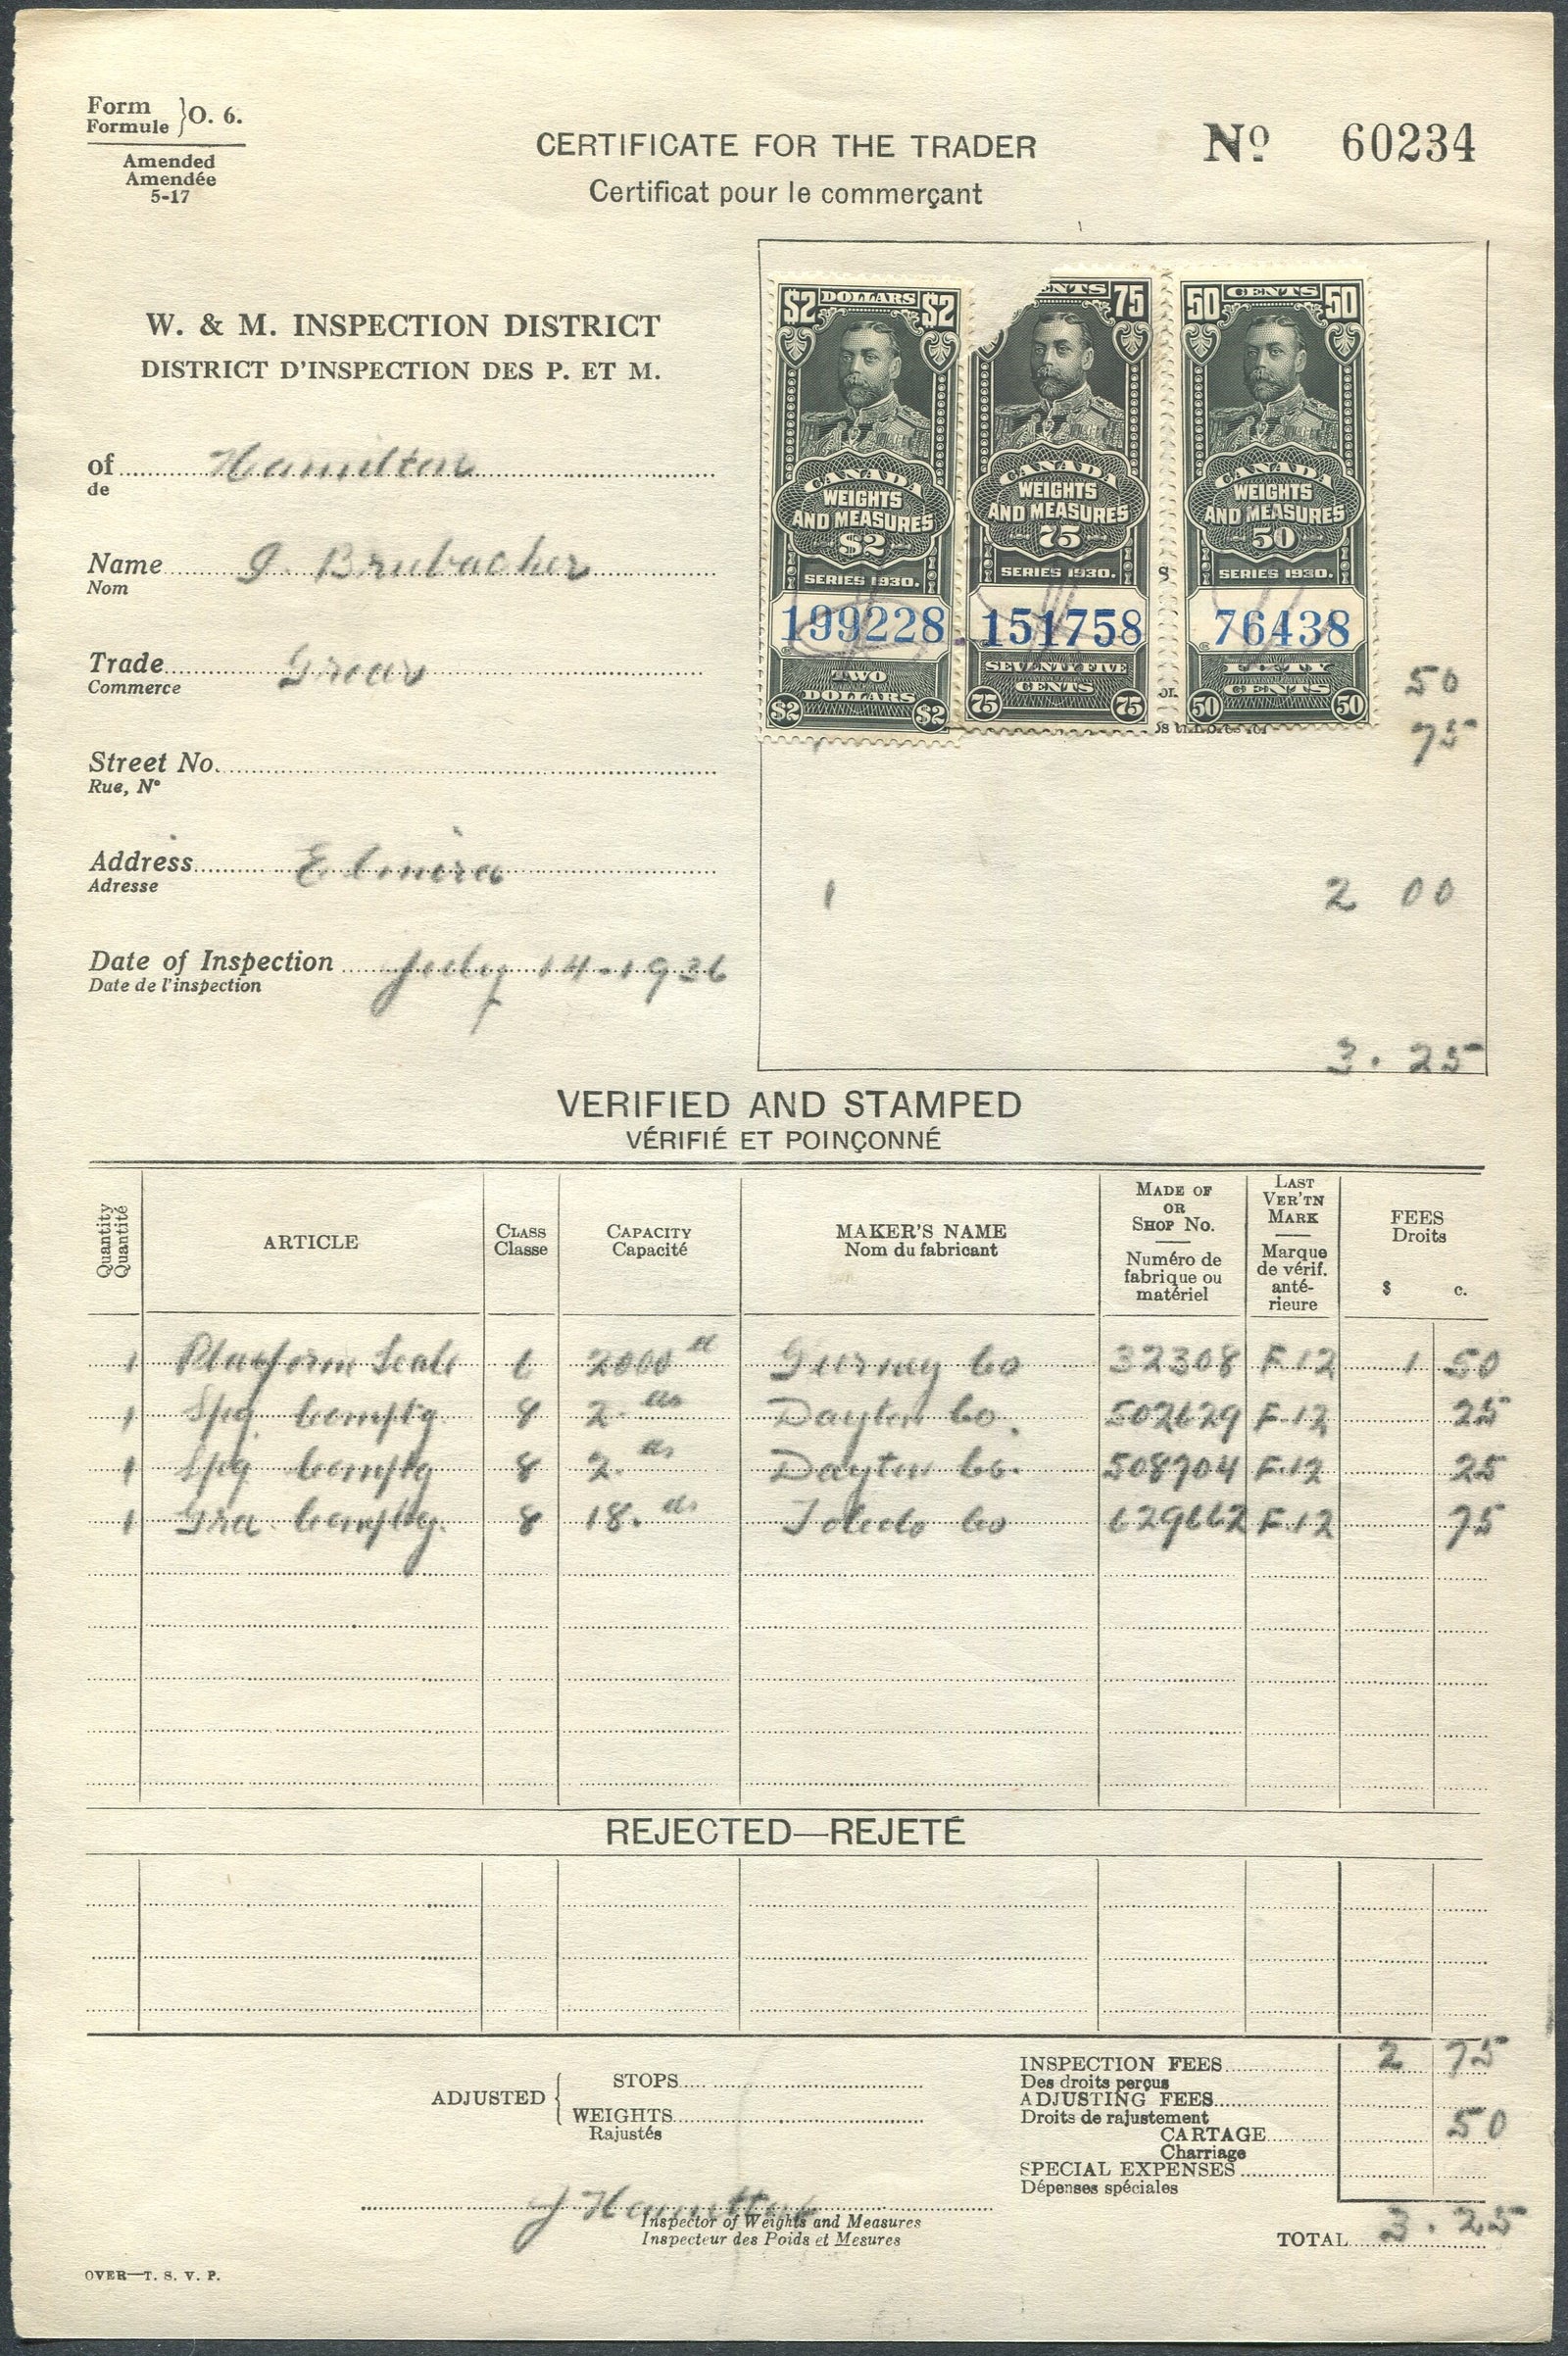 Form
Formule } O. 6.
Amended
Amendée
5-17
CERTIFICATE FOR THE TRADER
Certificat pour le commerçant
Nº 60234
W. & M. INSPECTION DISTRICT
DISTRICT D'INSPECTION DES P. ET M.
of Hamilton
de
Name J. Brubacher
Nom
Trade
Commerce
Street No.
Rue, Nº
Address Elmira
Adresse
Date of Inspection July 14-1936
Date de l'inspection
$2 DOLLARS $2
CANADA
WEIGHTS
AND MEASURES
$2
SERIES 1930.
199228
TWO
DOLLARS
$2 $2
CENTS 75
CANADA
WEIGHTS
AND MEASURES
75
SERIES 1930.
151758
SEVENTY FIVE
CENTS
75 75
50 CENTS 50
CANADA
WEIGHTS
AND MEASURES
50
SERIES 1930.
76438
FIFTY
CENTS
50 50
50
75
1 2 00
3.25
VERIFIED AND STAMPED
VÉRIFIÉ ET POINÇONNÉ
Quantity
Quantité
ARTICLE
CLASS
Classe
CAPACITY
Capacité
MAKER'S NAME
Nom du fabricant
MADE OF
OR
SHOP No.
Numéro de
fabrique ou
matériel
LAST
VER'TN
MARK
Marque
de vérif.
anté-
rieure
FEES
Droits
$ c.
1 Platform Scale 6 2000 Gurney Co 32308 F.12 1 50
1 Spg. Comptg. 8 2. Dayton Co. 502629 F.12 25
1 Spg Comptg 8 2. Dayton Co. 508704 F.12 25
1 Gra. Comptg. 8 18. Toledo Co 629662 F.12 75
REJECTED—REJETÉ
ADJUSTED { STOPS
WEIGHTS
Rajustés
INSPECTION FEES 2 75
Des droits perçus
ADJUSTING FEES
Droits de rajustement
CARTAGE 50
Charriage
SPECIAL EXPENSES
Dépenses spéciales
TOTAL 3.25
Inspector of Weights and Measures
Inspecteur des Poids et Mesures
OVER—T. S. V. P.